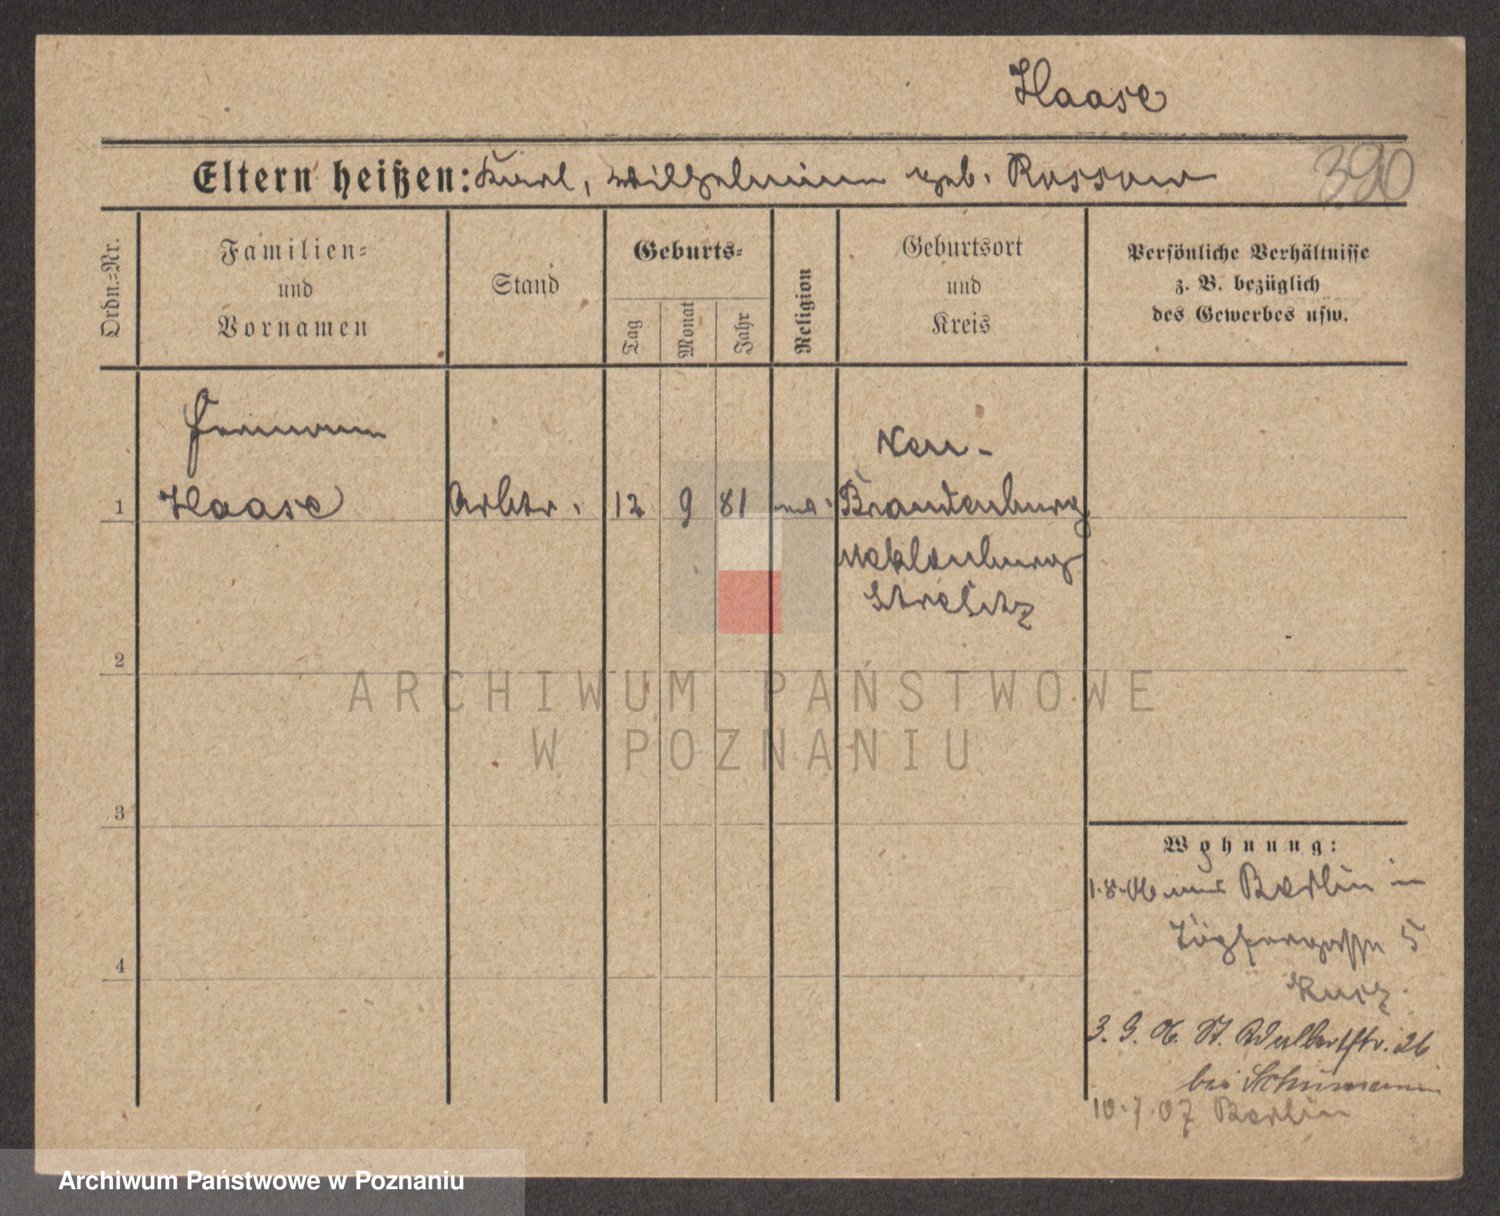 Haase
Eltern heißen: Karl, Wilhelmine geb. Rossow
390
Ordn.=Nr.
Familien=
und
Vornamen
Stand
Geburts=
Tag
Monat
Jahr
Religion
Geburtsort
und
Kreis
Persönliche Verhältnisse
z. B. bezüglich
des Gewerbes usw.
Hermann
Neu-
1 Haase Arbtr. 12 9 81 Brandenburg
Meklenburg
Strelitz
2
3
4
Wohnung:
1.8.06 aus Berlin in
Töpfergasse 5
3. 9. 06. St. Adalbertstr. 26
bei Schümann
10.7.07 Berlin
ARCHIWUM PAŃSTWOWE
W POZNANIU
Archiwum Państwowe w Poznaniu